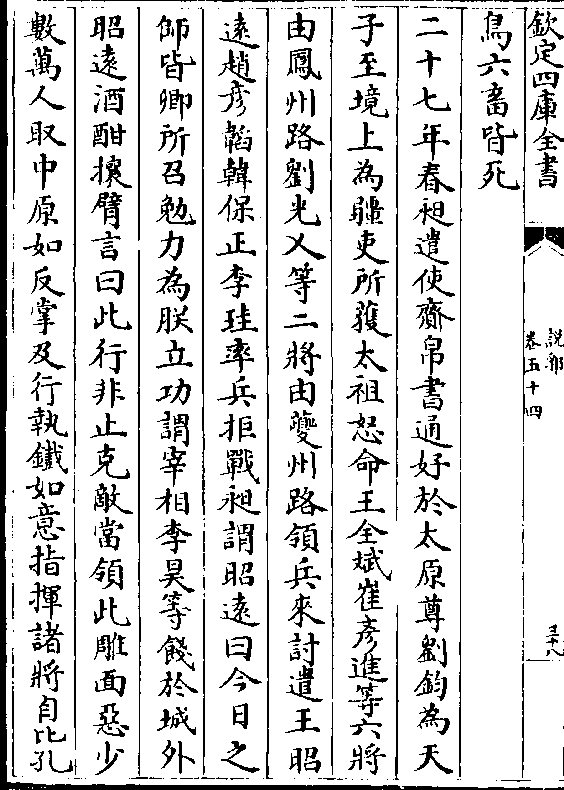 欽定四庫全書
說郛
卷五十四
三十八
鳥六畜皆死
二十七年春昶遣使齎帛書通好於太原尊劉鈞為天
子至境上為疆吏所獲太祖怒命王全斌崔彥進等六將
由鳳州路劉光乂等二將由夔州路領兵來討遣王昭
遠趙彥韜韓保正李珪率兵拒戰昶謂昭遠曰今日之
師皆卿所召勉力為朕立功謂宰相李昊等餞於城外
昭遠酒酣攘臂言曰此行非止克敵當領此雕面惡少
數萬人取中原如反掌及行執鐵如意指揮諸將自比孔